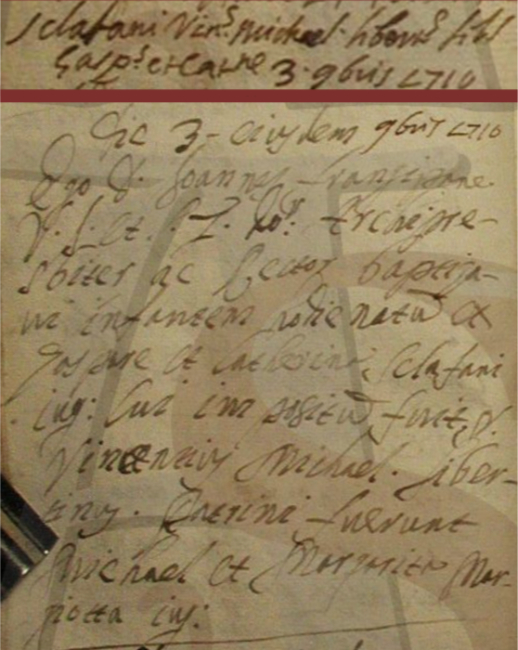 Sclafani Vin.s Michael libert.s fil.s
Gasp.s et Catne 3. 9bris 1710
Die 3 - eiusdem 9bris 1710
Ego D. Joannes Frangipane
V. J. et Archipre-
sbiter ac Rector baptiza-
vi infantem hodie natu ex
Gaspare et Catherina Sclafani
iug: cui impositu fuit
Vincencius Michael. liber-
tinus. Patrini fuerunt
Michael et Margarita Mar-
iotta iug: